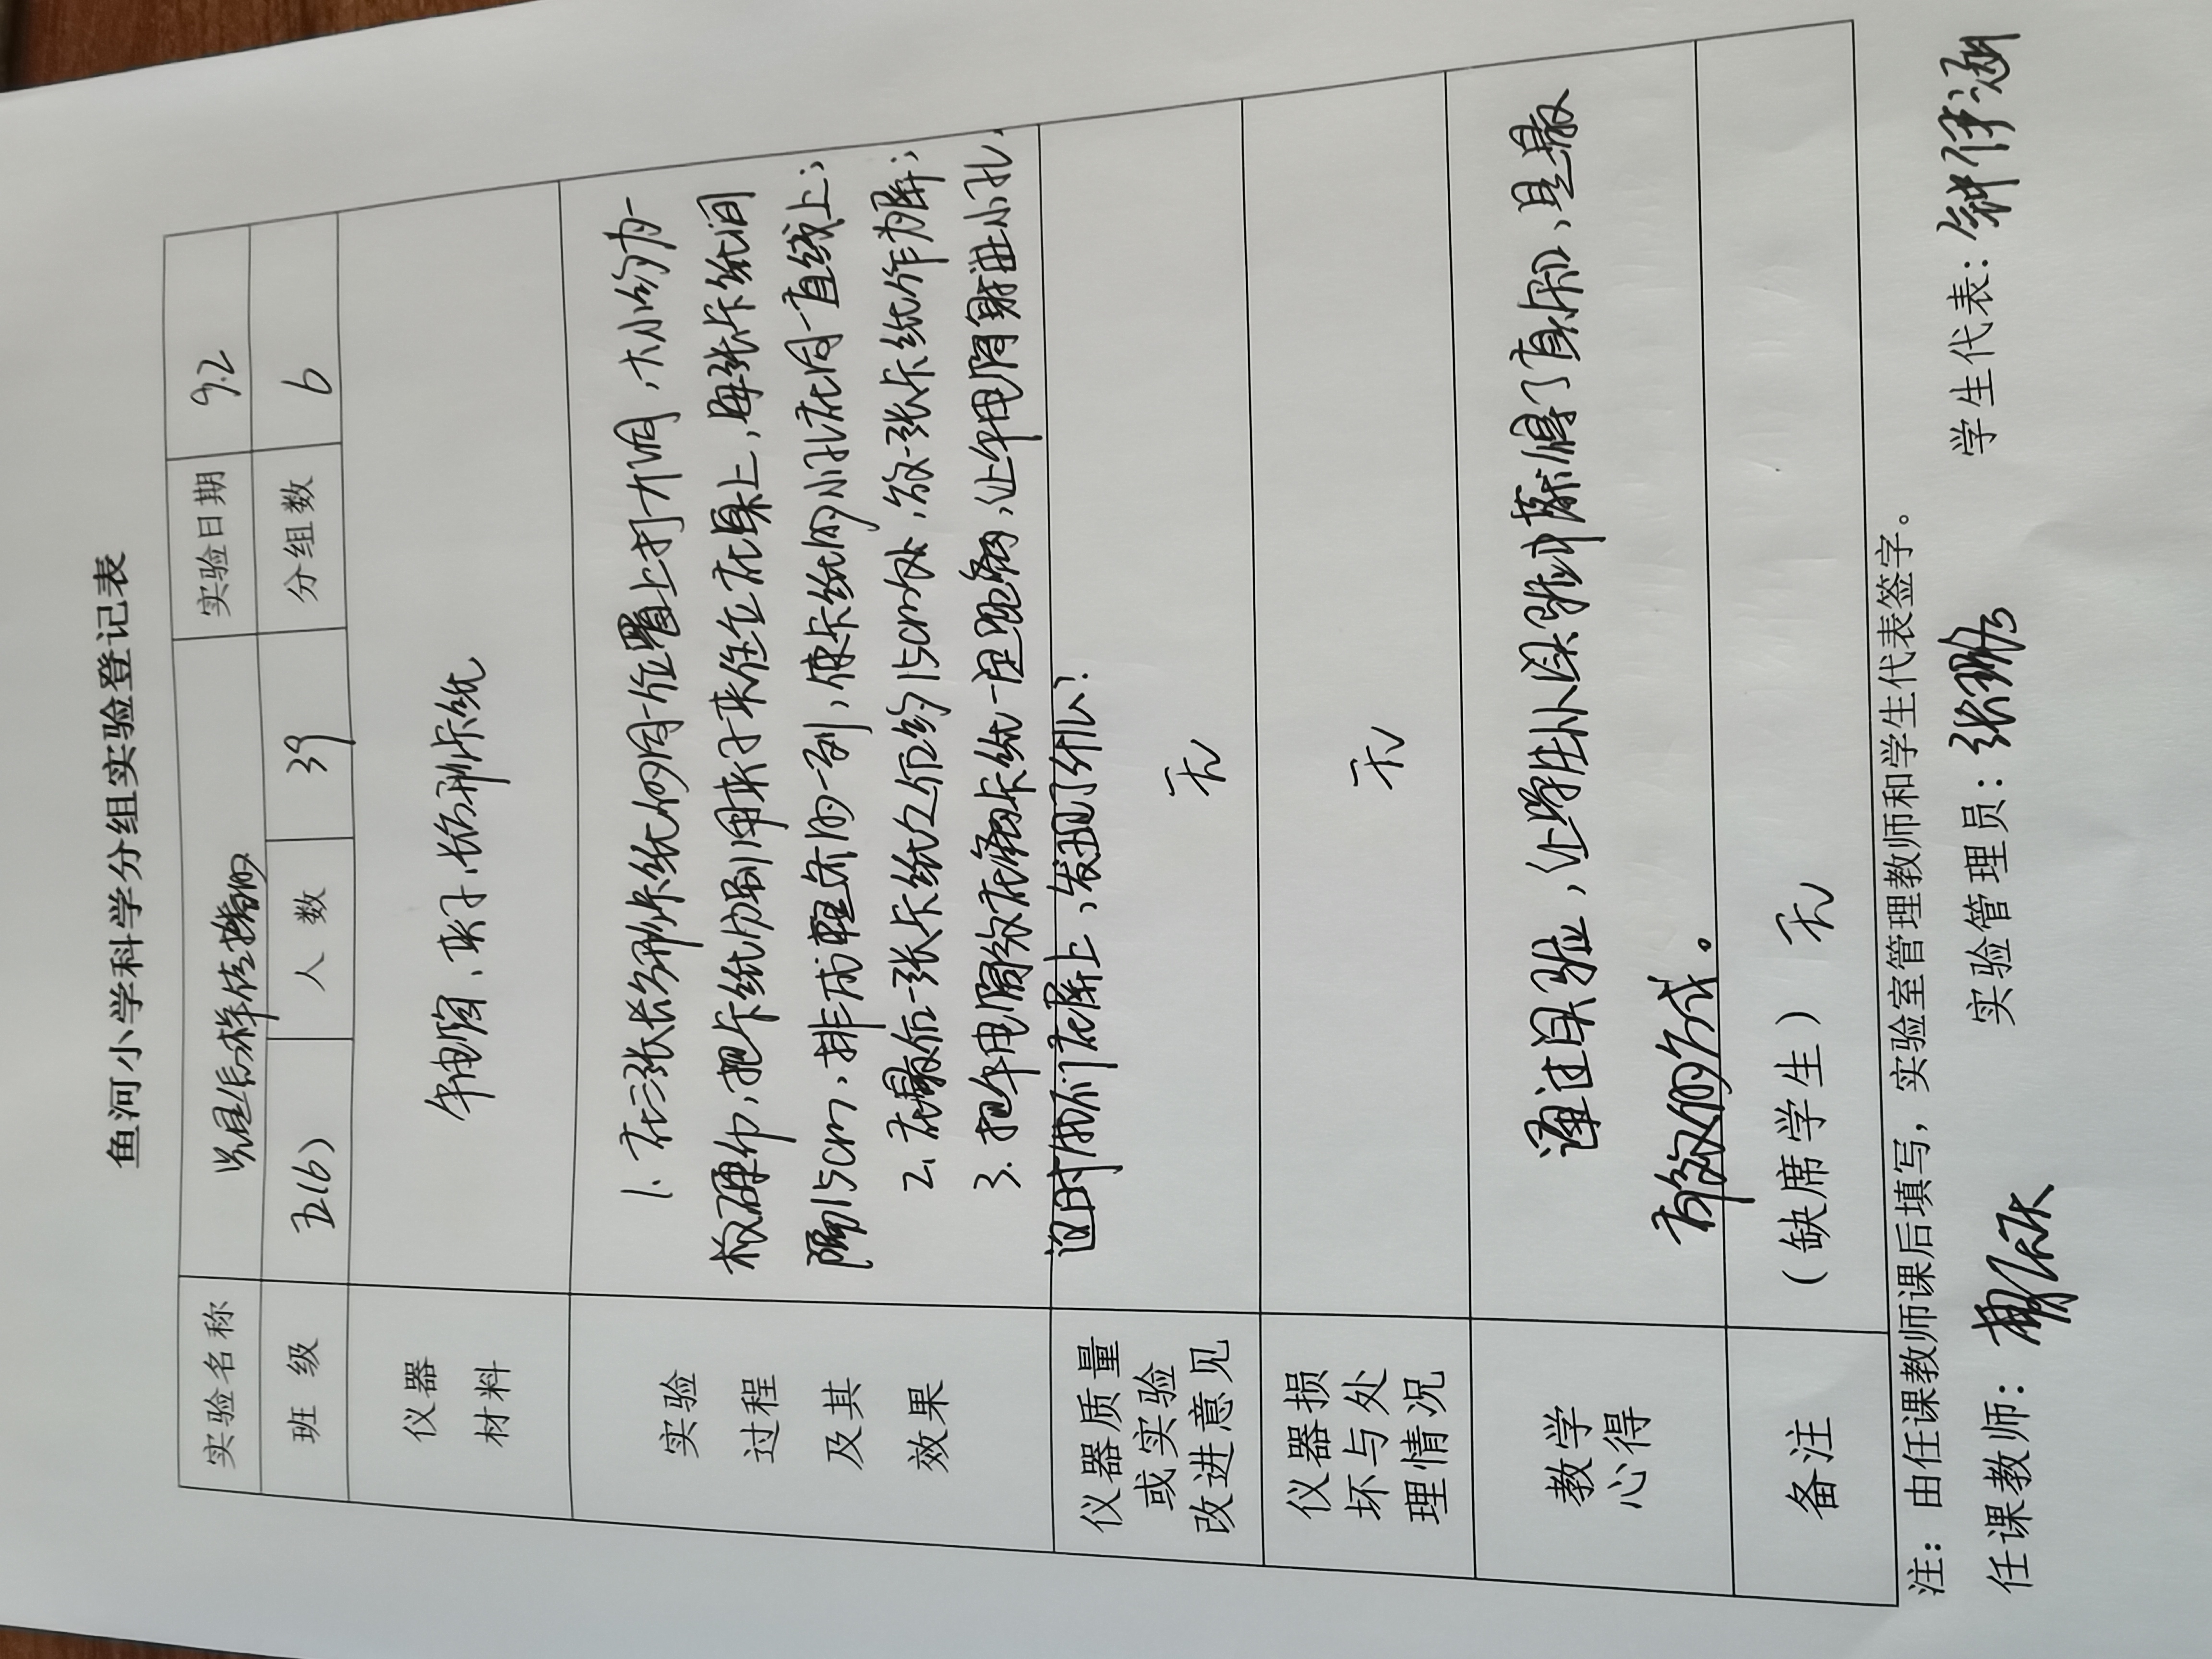 鱼河小学科学分组实验登记表
实验名称 光是怎样传播的 实验日期 9.2
班 级 五(6) 人 数 39 分组数 6
仪器材料 手电筒、夹子、长方形卡纸
实验过程及其效果
1. 在三张长方形卡纸的同一位置上打个洞,大小约为一
枚硬币,把卡纸分别用夹子夹住立在桌上,每张卡纸间
隔15cm,排成整齐的一列,使卡纸的小孔在同一直线上;
2. 在最后一张卡纸之后约15cm处,放一张卡纸作为屏;
3. 把手电筒放在离卡纸一定距离,让手电筒射进小孔,
这时我们在屏上,发现了什么?
仪器质量或实验改进意见 无
仪器损坏与处理情况 无
教学心得
通过实验,让学生从实验中获得了真知,是最
有效的方式。
备注 (缺席学生) 无
注:由任课教师课后填写,实验室管理教师和学生代表签字。
任课教师: 实验管理员:张 学生代表:钟